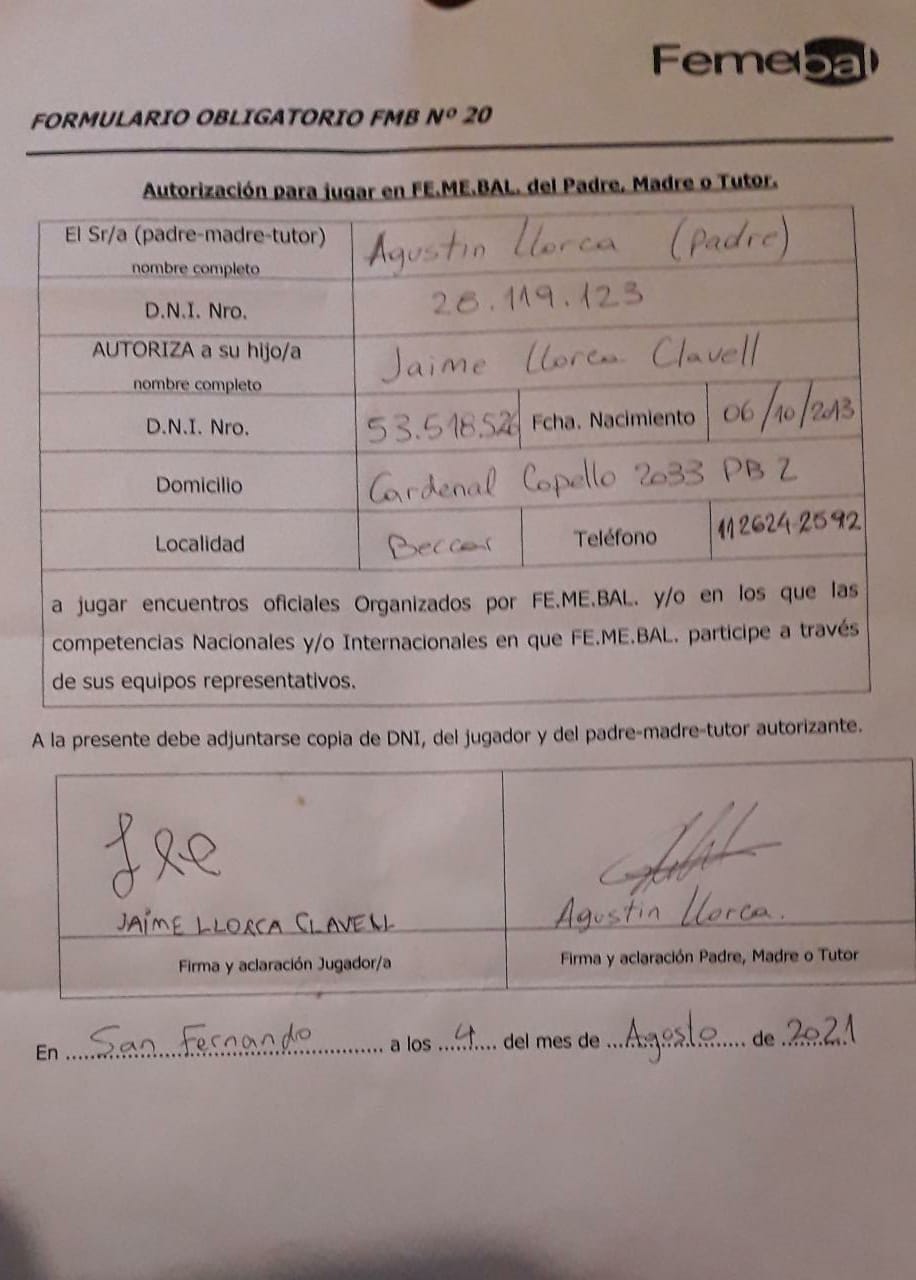 Femebal
FORMULARIO OBLIGATORIO FMB Nº 20
Autorización para jugar en FE.ME.BAL. del Padre, Madre o Tutor.
El Sr/a (padre-madre-tutor) Agustin Llorca (padre)
nombre completo
D.N.I. Nro. 28.119.123
AUTORIZA a su hijo/a Jaime Llorca Clavell
nombre completo
D.N.I. Nro. 53.518.526 Fcha. Nacimiento 06/10/2013
Domicilio Cardenal Copello 2033 PB 2
Localidad Beccar Teléfono 112624-2592
a jugar encuentros oficiales Organizados por FE.ME.BAL. y/o en los que las
competencias Nacionales y/o Internacionales en que FE.ME.BAL. participe a través
de sus equipos representativos.
A la presente debe adjuntarse copia de DNI, del jugador y del padre-madre-tutor autorizante.
JAIME LLORCA CLAVELL Agustin Llorca.
Firma y aclaración Jugador/a Firma y aclaración Padre, Madre o Tutor
En San Fernando a los 4 del mes de Agosto de 2021